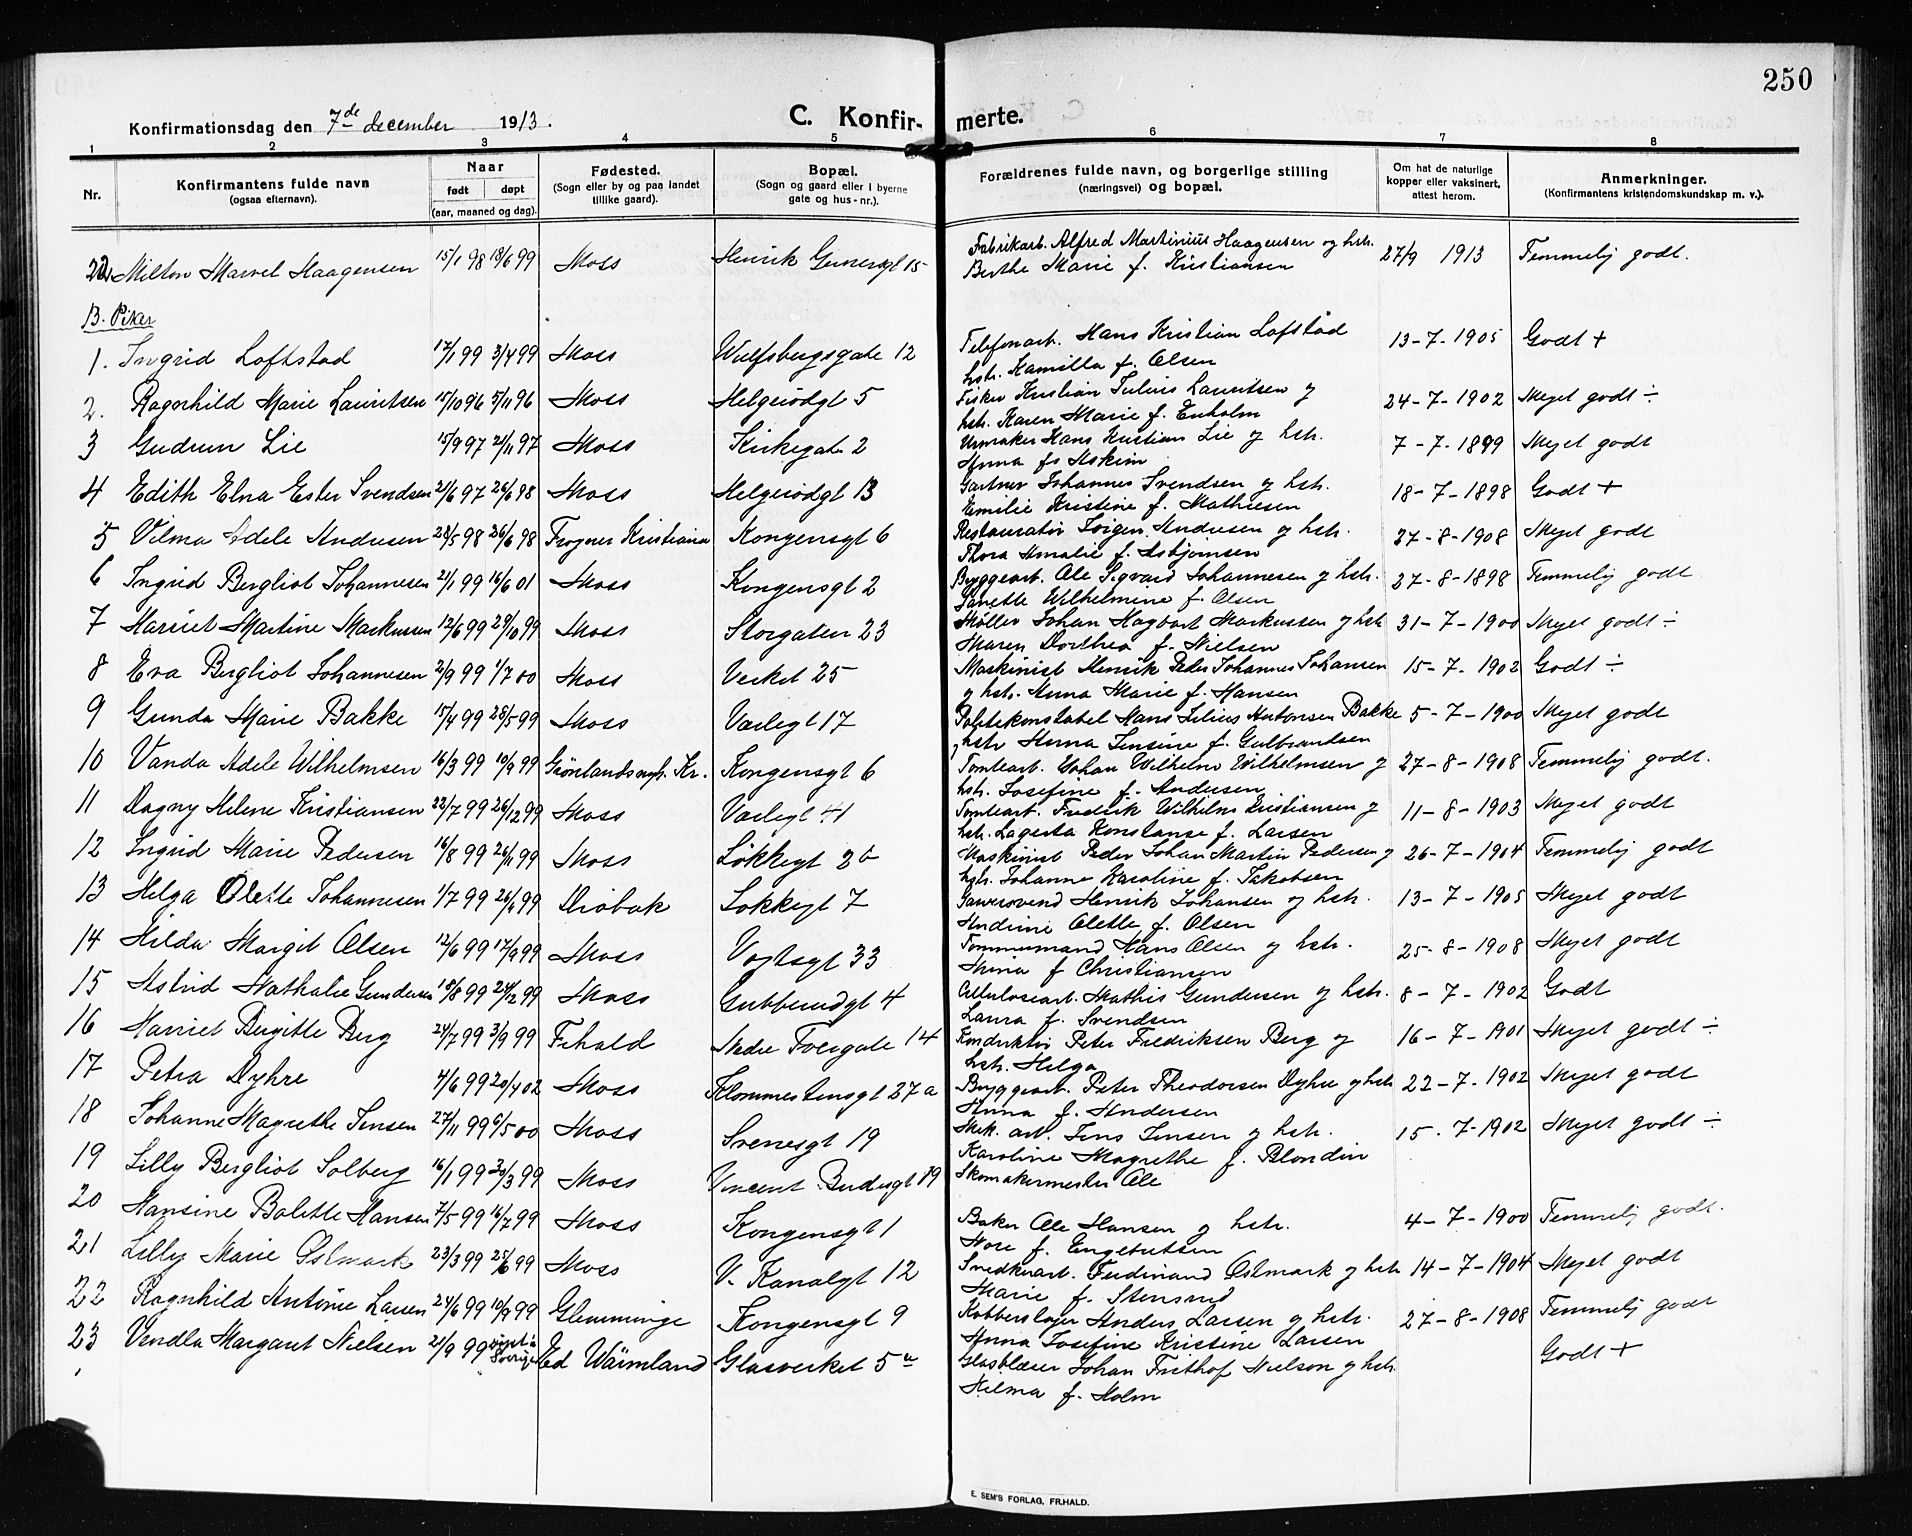 250
Konfirmationsdag den 7de december 1913.
C. Konfirmerte.
1 2 3 4 5 6 7 8
Nr.
Konfirmantens fulde navn
(ogsaa efternavn).
Naar
født døpt
(aar, maaned og dag).
Fødested.
(Sogn eller by og paa landet
tillike gaard).
Bopæl.
(Sogn og gaard eller i byerne
gate og hus-nr.).
Forældrenes fulde navn, og borgerlige stilling
(næringsvei) og bopæl.
Om hat de naturlige
kopper eller vaksinert,
attest herom.
Anmerkninger.
(Konfirmantens kristendomskundskap m. v.).
22 Milton Marvel Haagensen 15/1 98 18/6 99 Moss Henrik Gernersgt 15 Fabrikarb. Alfred Martinius Haagensen og hstr. 27/9 1913 Temmelig godt.
Berthe Marie f. Kristiansen
B. Piker
1. Ingrid Loftstad 17/1 99 3/4 99 Moss Wulfsbergsgate 12 Telefonarb. Hans Kristian Lofstad 13-7-1905 Godt +
hstr. Kamilla f. Olsen
2. Ragnhild Marie Lauritsen 15/10 96 5/11 96 Moss Helgerødgt 5 Fisker Kristian Julius Lauritsen og 24-7-1902 Meget godt ÷
hstr. Karen Marie f. Enholm
3 Gudrun Lie 15/9 97 21/11 97 Moss Kirkegate 2 Urmaker Hans Kristian Lie og hstr. 7-7-1899 Meget godt
Anna f. Askim
4 Edith Elna Ester Svendsen 21/6 97 26/6 98 Moss Helgerødgt 13 Gartner Johannes Svendsen og hstr. 18-7-1898 Godt +
Emilie Kristine f. Mathiesen
5 Vilma Adele Andresen 28/5 98 26/6 98 Frogner Kristiania Kongensgt 6 Restauratør Jørgen Andresen og hstr. 27-8-1908 Meget godt
Thora Amalie f. Asbjørnsen
6 Ingrid Bergliot Johannesen 21/1 99 16/6 01 Moss Kongensgt 2 Bryggearb. Ole Sigvard Johannesen og hstr. 27-8-1898 Temmelig godt
Janette Wilhelmine f. Olsen
7 Harriet Martine Markussen 12/6 99 29/10 99 Moss Storgaten 23 Møller Johan Hagbart Markussen og hstr 31-7-1900 Meget godt ÷
Maren Dorthea f. Nielsen
8 Eva Bergliot Johannesen 2/9 99 1/7 00 Moss Verket 25 Maskinist Henrik Peder Johannes Johansen 15-7-1902 Godt ÷
og hstr. Anna Marie f. Hansen
9 Gunda Marie Bakke 15/4 99 28/5 99 Moss Varlegt 17 Politikonstabel Hans Julius Antonsen Bakke 5-7-1900 Meget godt
hstr Anna Jensine f. Gulbrandsen
10 Vanda Adele Wilhelmsen 16/3 99 10/9 99 Grønlandsmgh. Kr. Kongensgt 6 Tomtearb. Johan Wilhelm Wilhelmsen og 27-8-1908 Temmelig godt.
hstr. Josefine f. Andersen
11 Dagny Helene Kristiansen 22/7 99 26/12 99 Moss Varlegt 41 Tomtearb. Fredrik Wilhelm Kristiansen og 11-8-1903 Meget godt
hstr. Lagerta Konstanse f. Larsen
12 Ingrid Marie Pedersen 16/8 99 26/11 99 Moss Løkkegt 26 Maskinist Peder Johan Martin Pedersen og 26-7-1904 Temmelig godt
hstr. Johanne Karoline f. Jakobsen
13 Helga Olette Johannesen 1/7 99 26/ 99 Drøbak Løkkegt 7 Henrik Johansen og hstr. 13-7-1905 Meget godt
Andrine Olette f. Olsen
14 Hilda Margit Olsen 12/6 99 17/9 99 Moss Vogtsgt 33 Tømmermand Hans Olsen og hstr. 25-8-1908 Meget godt
Mina f Christiansen
15 Astrid Nathalie Gundersen 18/8 99 24/12 99 Moss Gubberudgt 4 Cellulosearb. Mathis Gundersen og hstr. 8-7-1902 Godt
Laura f. Svendsen
16 Harriet Birgitte Berg 24/7 99 3/9 99 Frhald Nedre Torvgate 14 Konduktør Peter Fredriksen Berg og 16-7-1901 Meget godt ÷
hstr. Helga
17 Petra Dyhre 4/6 99 20/4 02 Moss Klommestensgt 27a Bryggearb. Peter Theodorsen Dyhre og hstr 22-7-1902 Meget godt
Anna f. Andersen
18 Johanne Magrethe Jensen 27/11 99 6/5 00 Moss Svenesgt 19 Mek. arb. Jens Jensen og hstr. 15-7-1902 Meget godt ÷
Karoline Magrethe f. Blondin
19 Lilly Bergliot Solberg 16/1 99 30/3 99 Moss Vincent Budesgt 19 Skomakermester Ole
20 Hansine Bolette Hansen 7/5 99 16/7 99 Moss Kongensgt 1 Baker Ole Hansen og hstr. 4-7-1900 Temmelig godt.
Nore f. Engebretsen
21 Lilly Marie Østmark 23/3 99 25/6 99 Moss V. Kanalgt 12 Snedkerarb. Ferdinand Østmark og hstr 14-7-1904 Meget godt
Marie f. Stensrud
22 Ragnhild Antonie Larsen 24/6 99 10/9 99 Glemminge Kongensgt 9 Kobberslager Anders Larsen og hstr. 27-8-1908 Temmelig godt
Anna Josefine Kristine Larsen
23 Vendla Margaret Nielsen 21/9 99 døpt i Sverige Ed Wärmland Glasverket 5 Glasblæser Johan Frithof Nielson og hstr. Godt +
Hilma f. Holm
E. SEM'S FORLAG, FR.HALD.